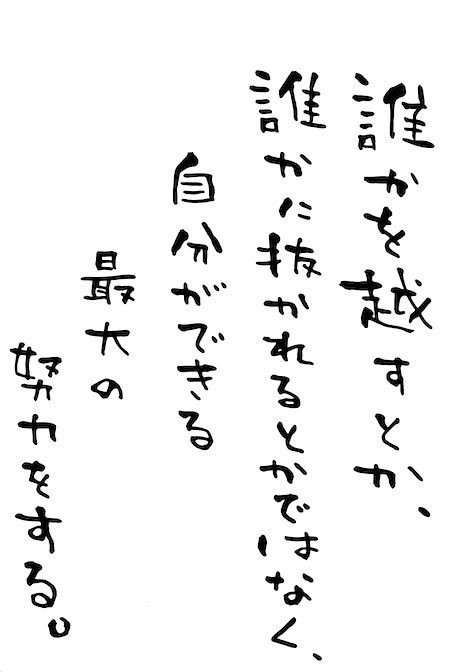 誰かを越すとか、
誰かに抜かれるとかではなく、
自分ができる
最大の
努力をする。